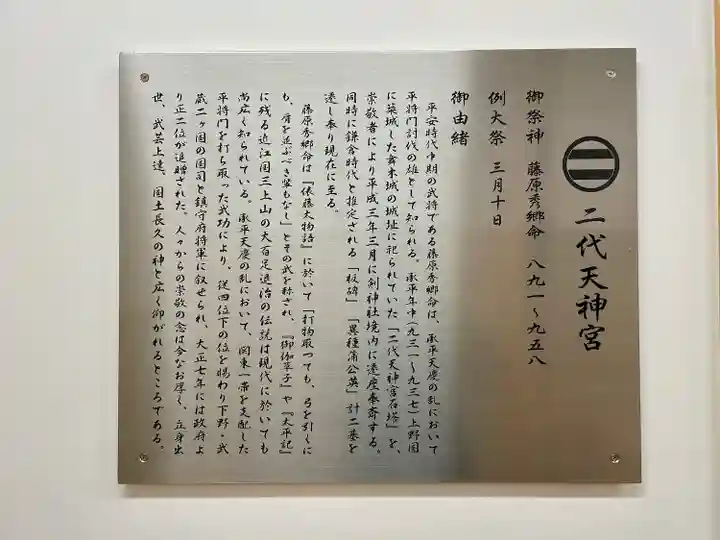 二代天神宮
御祭神 藤原秀郷命 八九一～九五八
例大祭 三月十日
御由緒
平安時代中期の武将である藤原秀郷命は、承平天慶の乱において
平将門討伐の雄として知られる。承平年中(九三一～九三七)上野国
に築城した舞木城の城址に祀られていた「二代天神宮石塔」を、
崇敬者により平成三年三月に剣神社境内に遷座奉斎する。
同時に鎌倉時代と推定される「板碑」「異種蒲公英」計二基を
遷し奉り現在に至る。
藤原秀郷命は『俵藤太物語』に於いて「打物取つても、弓を引くに
も、肩を並ぶべき輩もなし」とその武を称され、『御伽草子』や『太平記』
に残る近江国三上山の大百足退治の伝説は現代に於いても
尚広く知られている。承平天慶の乱において、関東一帯を支配した
平将門を打ち取った武功により、従四位下の位を賜わり下野・武
蔵二ヶ国の国司と鎮守府将軍に叙せられ、大正七年には政府よ
り正二位が追贈された。人々からの崇敬の念は今なお厚く、立身出
世、武芸上達、国土長久の神と広く仰がれるところである。